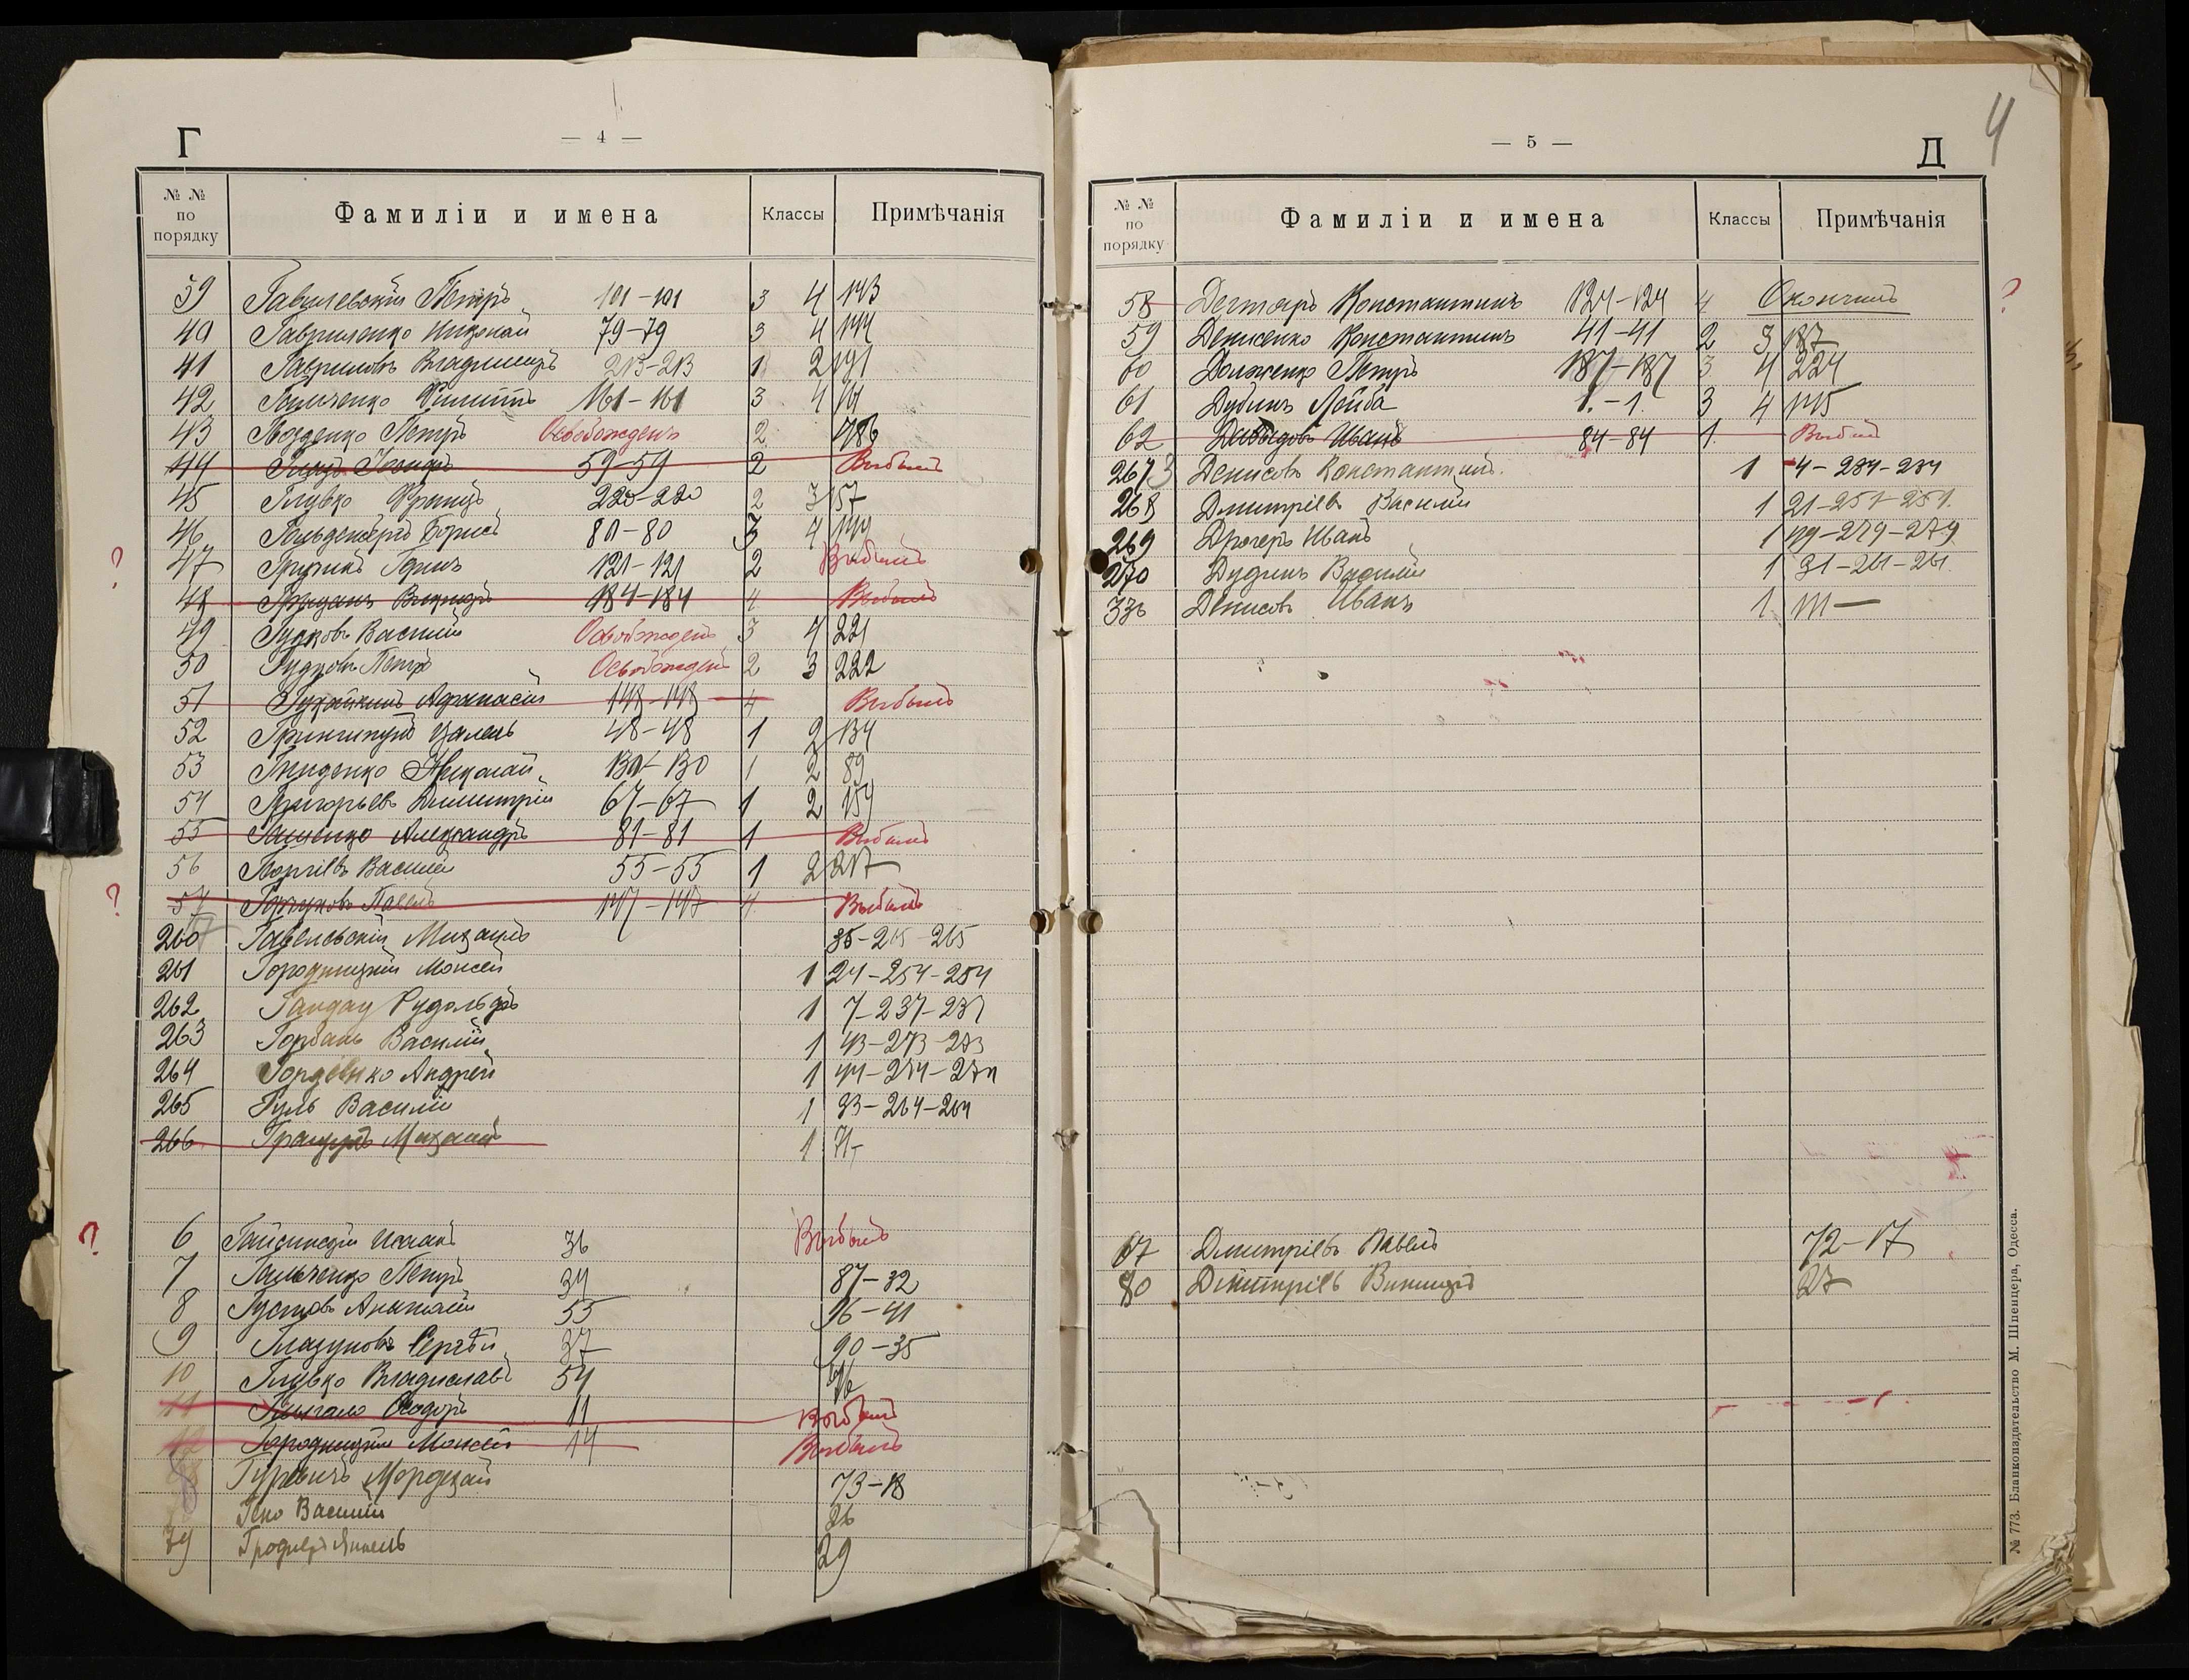 Г
— 4 —
№ № по порядку Фамиліи и имена Классы Примѣчанія
39 Гавилевскій Петръ 101-101 3 4 143
40 Гавриленко Николай 79-79 3 4 144
41 Гавриловъ Владиміръ 213-213 1 2 191
42 Гальченко Филиппъ 161-161 3 4
43 Гвозденко Петръ Освобожденъ 2 186
44 59-59 2 Выбылъ
45 Гливко Францъ 220-220 2 3 157
46 Гольденбергъ Борисъ 80-80 3 4 149
? 47 121-121 2 Выбылъ
48 184-184 4 Выбылъ
49 Гудковъ Василій Освобожденъ 3 4 221
50 Гудковъ Петръ Освобожденъ 2 3 222
51 Афанасій 148-148 4 Выбылъ
52 48-48 1 2 134
53 Гниденко Николай 130-130 1 2 89
54 Григорьевъ Димитрій 67-67 1 2 159
55 Александръ 81-81 1 Выбылъ
56 Георгіевъ Василій 55-55 1 2 217
? 57 Павелъ 147-147 4 Выбылъ
260 Гавелевскій Михаилъ 35-265-265
261 Городницкій Моисей 1 24-254-254
262 Гандау Рудольфъ 1 7-237-237
263 Горбань Василій 1 43-273-273
264 Гордѣенко Андрей 1 44-274-274
265 Гуль Василій 1 33-264-264
266 Михаилъ 1 71-
? 6 Гайсинскій Исаакъ 36 Выбылъ
7 Гальченко Петръ 34 87-32
8 Густовъ Анатолій 55 96-41
9 Глазуновъ Сергѣй 37 90-35
10 Гливко Владиславъ 54
11 Ѳеодоръ 11 Выбылъ
12 Городницкій Моисей 14 Выбылъ
Гуревичъ Мордхай 73-18
Гено Василій 26
79 29
4
— 5 —
Д
№ № по порядку Фамиліи и имена Классы Примѣчанія
58 Дегтярь Константинъ 124-124 4 Окончилъ ?
59 Денисенко Константинъ 41-41 2 3 187
60 Долженко Петръ 187-187 3 4 224
61 Дубинъ Лейба 1.-1. 3 4 145
62 Давыдовъ Иванъ 84-84 1. Выбылъ
267 Денисовъ Константинъ. 1 4-234-234
268 Дмитріевъ Василій 1 21-251-251.
269 Иванъ 1 49-279-279
270 Дудинъ Василій 1 31-261-261.
336 Денисовъ Иванъ 1
67 Дмитріевъ Павелъ 72-17
80 Дмитріевъ 27
№ 773. Бланкоиздательство М. Шпенцера, Одесса.